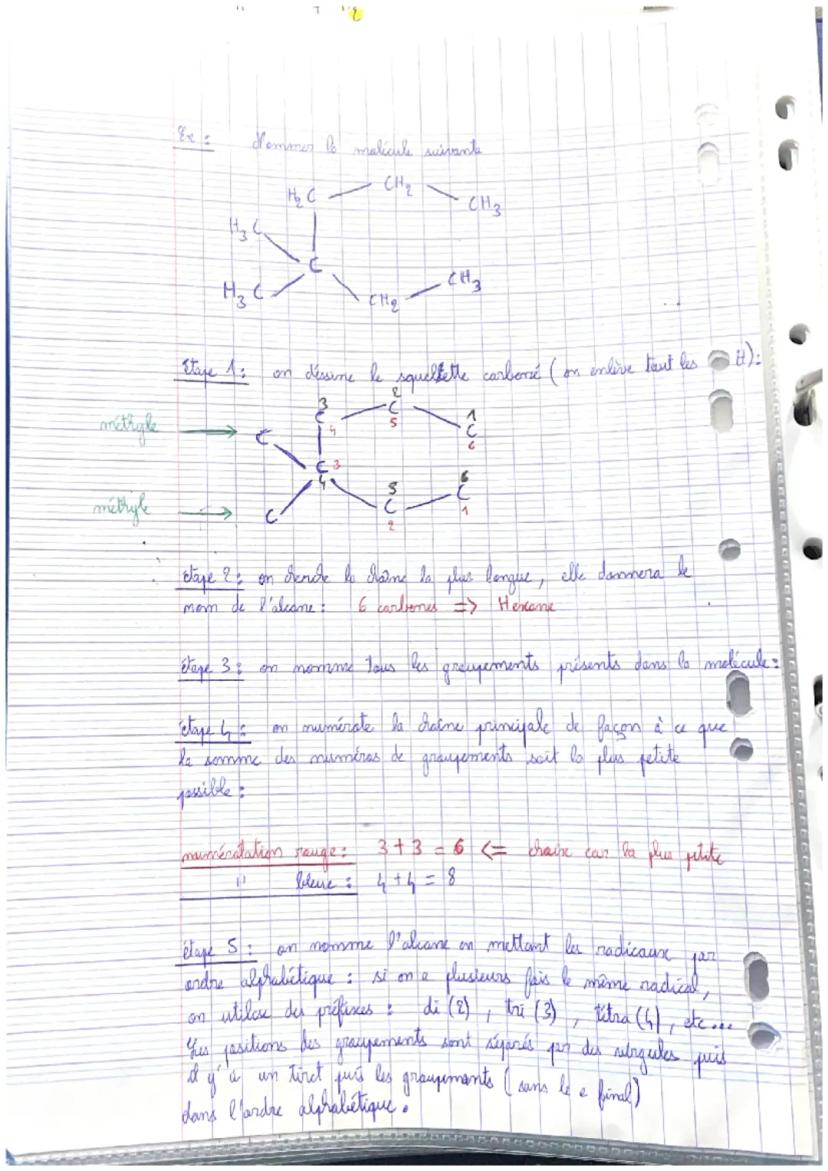 Ex : Nommer la molécule suivante
H₂C CH₂ CH₃
H₃C
C
H₃C CH₂ CH₃
étape 1 : on déssine le squelette carboné (on enlève tout les H) :
méthyle → C 3 C 4 2 C 5 1 C 6
C 3 4
méthyle → C 5 C 2 6 C 1
étape 2 : on cherche la chaîne la plus longue, elle donnera le
nom de l'alcane : 6 carbones => Hexane
étape 3 : on nomme tous les groupements présents dans la molécule :
étape 4 : on numérote la chaîne principale de façon à ce que
la somme des numéros de groupements soit la plus petite
possible :
numérotation rouge : 3 + 3 = 6 <= choix car la plus petite
" bleue : 4 + 4 = 8
étape 5 : on nomme l'alcane en mettant les radicaux par
ordre alphabétique : si on a plusieurs fois le même radical,
on utilise des préfixes : di (2), tri (3), tétra (4), etc...
Les positions des groupements sont séparés par des virgules puis
il y'a un tiret puis les groupements (sans le e final)
dans l'ordre alphabétique.